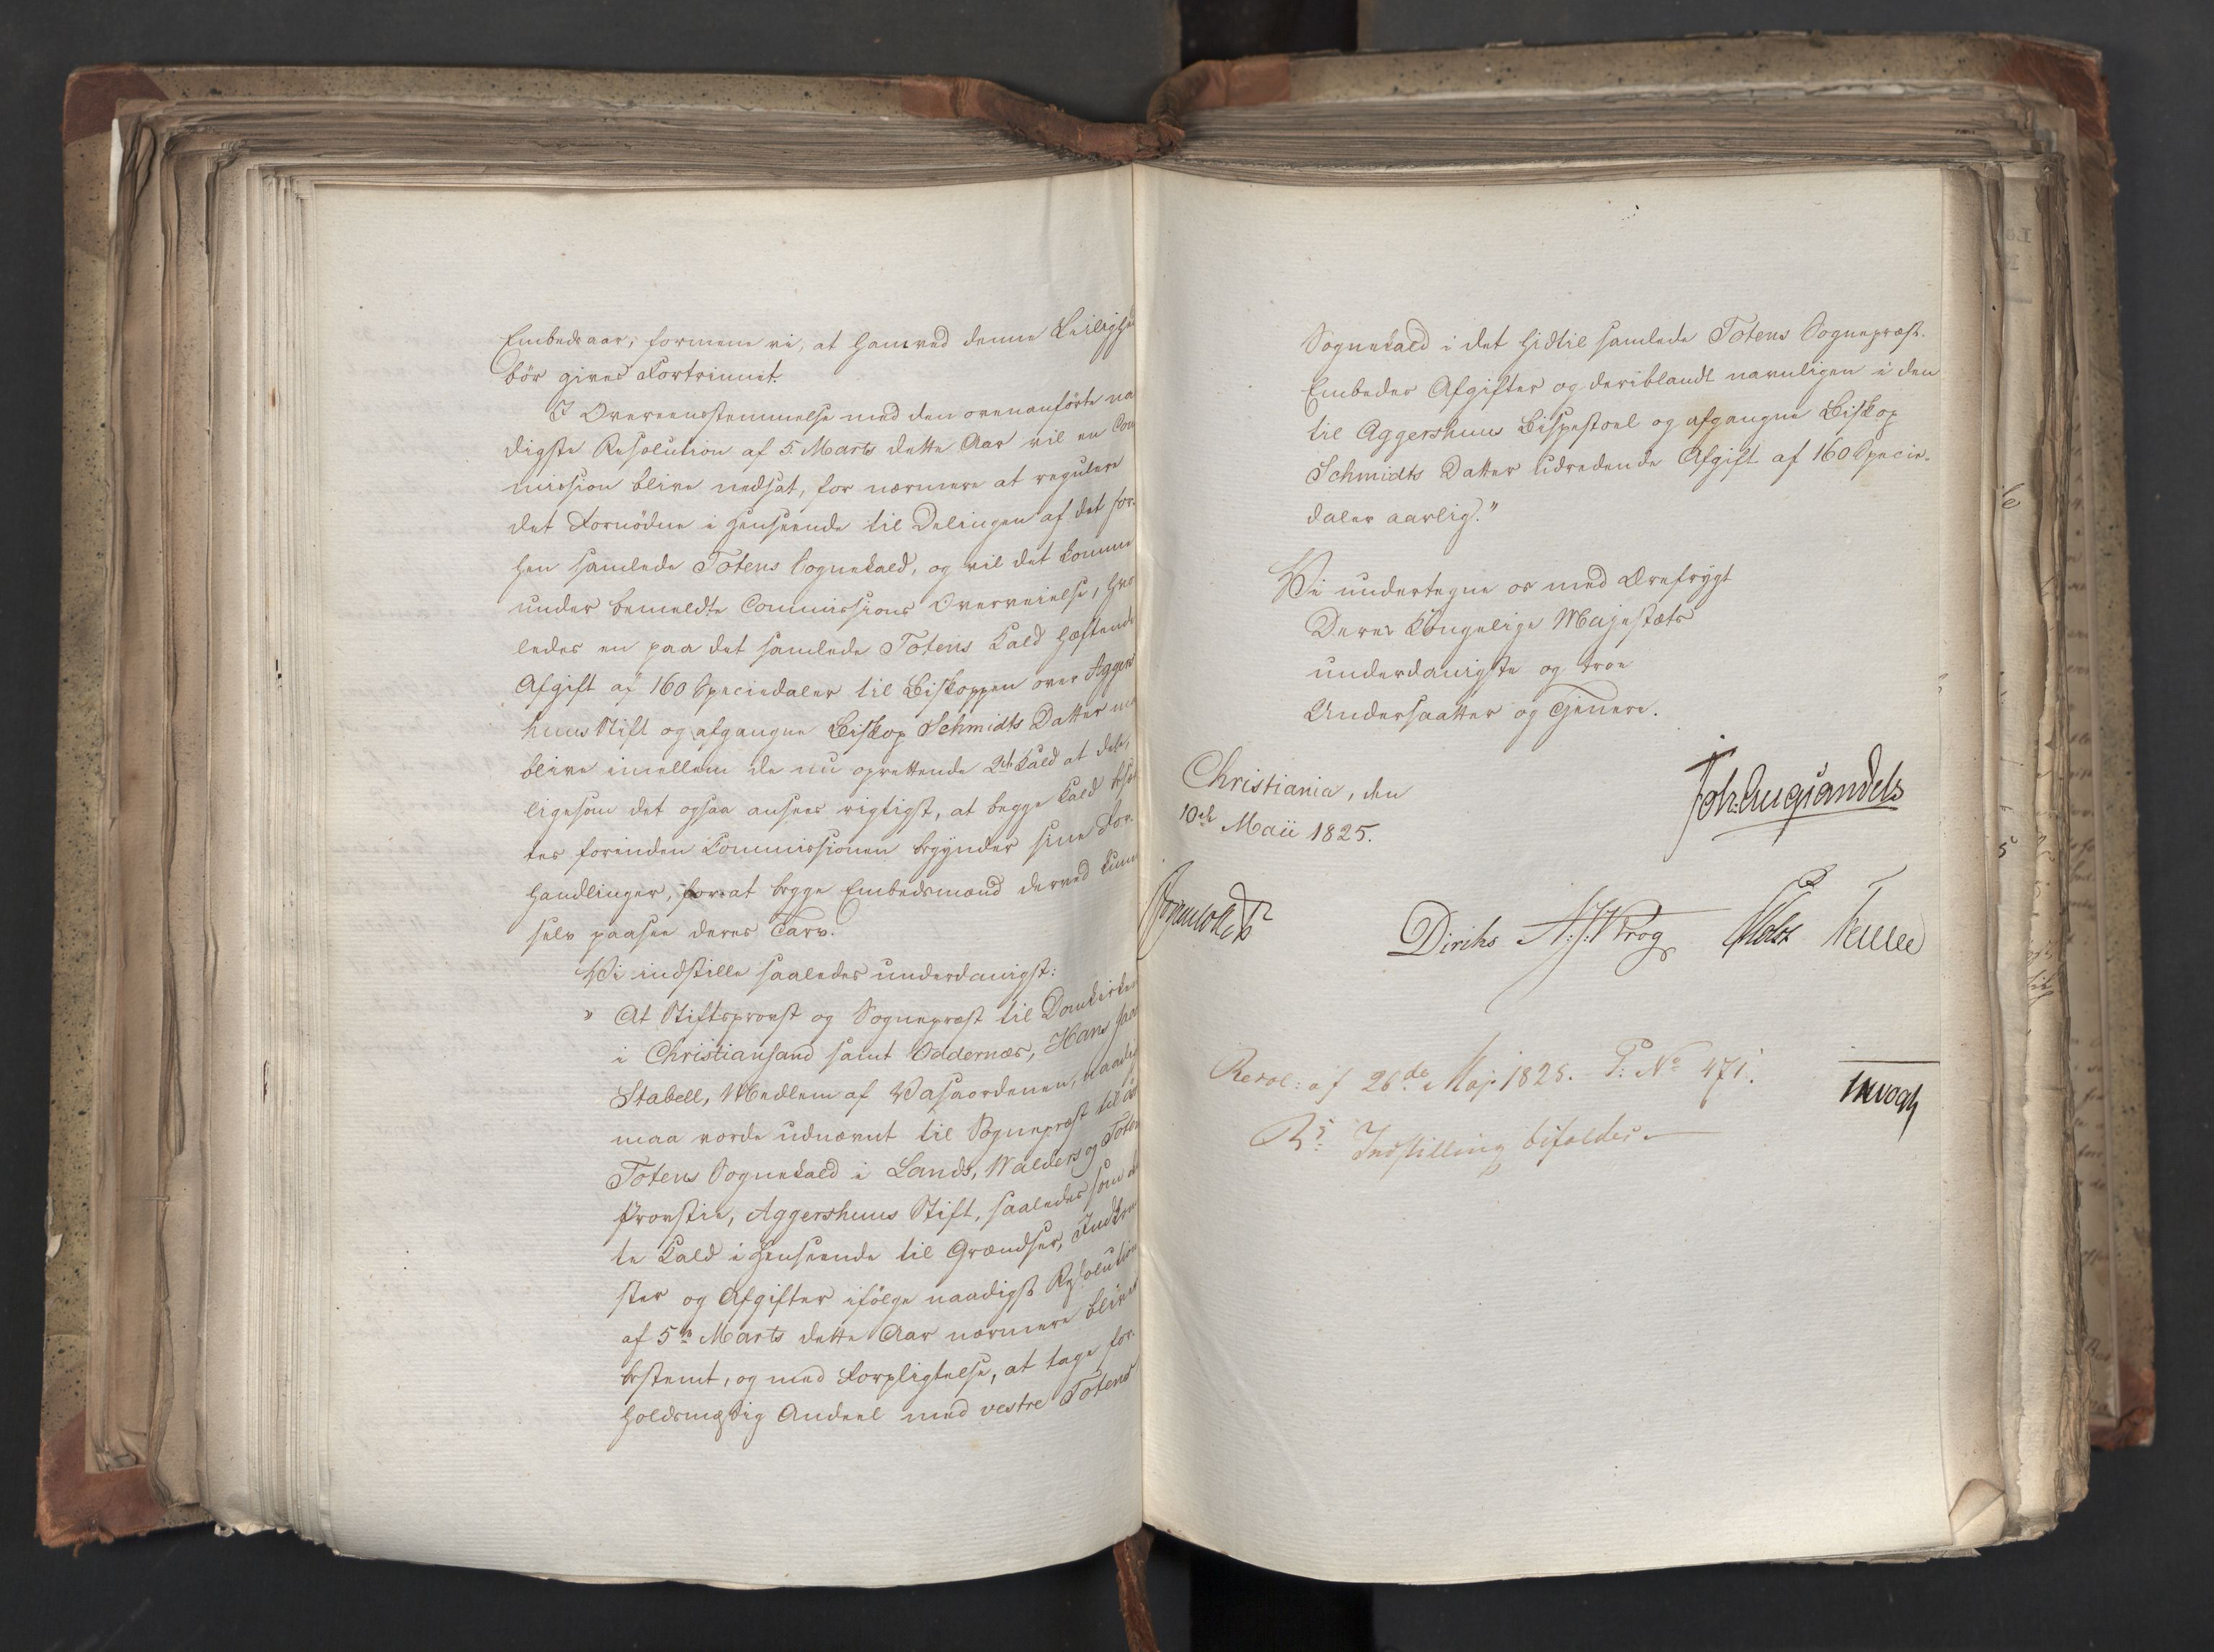 Embedsaar; formene vi, at ham ved denne Leilighed
bör gives Fortrinnet.
I Overeensstemmelse med den ovenanförte naa
digste Resolution af 5 Marts dette Aar vil en Com
mission blive nedsat, for nærmere at regulere
det Fornödne i Henseende til Delingen af det for-
hen samlede Totens Sognekald, og vil det komme
under bemeldte Commissions Overveielse, hvor
ledes en paa det samlede Totens Kald hæftende
Afgift af 160 Speciedaler til Biskoppen over Aggers
huus Stift og afgangne Biskop Schmidts Datter maa
blive imellem de nu oprettende 2de Kald at dele,
ligesom det ogsaa ansees rigtigst, at begge Kald besæt
tes forinden Commissionen begynder sine For-
handlinger, for at begge Embedsmænd derved kunne
selv paasee deres Tarv.
Vi indstille saaledes underdanigst:
" At Stiftsprovst og Sognepræst til Domkirken
i Christiansand samt Oddernæs, Hans Jacob
Stabell, Medlem af Wasaordenen, naadigst
maa vorde udnævnt til Sognepræst til östre
Totens Sognekald i Lands, Walders og Totens
Provstie, Aggershuus Stift, saaledes som det
te Kald i Henseende til Grændser, Indkom
ster og Afgifter ifölge naadigst Resolution
af 5te Marts dette Aar nærmere bliver
bestemt, og med Forpligtelse, at tage for-
holdsmæssig Andeel med vestre Totens
Sognekald i det hidtil samlede Totens Sognepræst-
Embedes Afgifter og deriblandt navnligen i den
til Aggershuus Bispestoel og afgangne Biskop
Schmidts Datter udredende Afgift af 160 Specie-
daler aarlig."
Vi undertegne os med Ærefrygt
Deres Kongelige Majestæts
underdanigste og troe
Undersaatter og Tjenere.
Christiania, den
10de Maii 1825.
Joh. Aug. Sandels
Diriks Krog Holst
Resol: af 26de Maj 1825. P: No 471.
Rs Indstilling bifaldes.